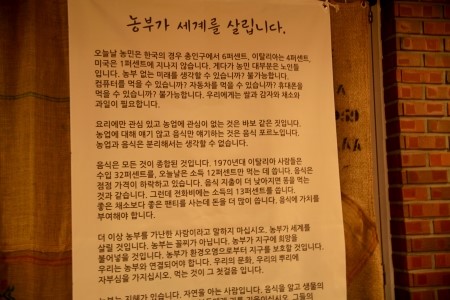 농부가 세계를 살립니다.
오늘날 농민은 한국의 경우 총인구에서 6퍼센트, 이탈리아는 4퍼센트,
미국은 1퍼센트에 지나지 않습니다. 게다가 농민 대부분은 노인들
입니다. 농부 없는 미래를 생각할 수 있습니까? 불가능합니다.
컴퓨터를 먹을 수 있습니까? 자동차를 먹을 수 있습니까? 휴대폰을
먹을 수 있습니까? 불가능합니다. 우리에게는 쌀과 감자와 채소와
과일이 필요합니다.
요리에만 관심 있고 농업에 관심이 없는 것은 바보 같은 짓입니다.
농업에 대해 얘기 않고 음식만 얘기하는 것은 음식 포르노입니다.
농업과 음식은 분리해서는 생각할 수 없습니다.
음식은 모든 것이 종합된 것입니다. 1970년대 이탈리아 사람들은
수입 32퍼센트를, 오늘날은 소득 12퍼센트만 먹는 데 씁니다. 음식은
점점 가격이 하락하고 있습니다. 음식 지출이 더 낮아지면 똥을 먹는
것과 같습니다. 그런데 전화비에는 소득의 13퍼센트를 씁니다.
좋은 채소보다 좋은 팬티를 사는데 돈을 더 많이 씁니다. 음식에 가치를
부여해야 합니다.
더 이상 농부를 가난한 사람이라고 말하지 마십시오. 농부가 세계를
살릴 것입니다. 농부는 꼴찌가 아닙니다. 농부가 지구에 희망을
불어넣을 것입니다. 농부가 환경오염으로부터 지구를 보호할 것입니다.
우리는 농부와 연결되어야 합니다. 우리의 문화, 우리의 뿌리에
자부심을 가지십시오. 먹는 것이 그 첫걸음 입니다.
농부는 지혜가 있습니다. 자연을 아는 사람입니다. 음식을 알고 생물의